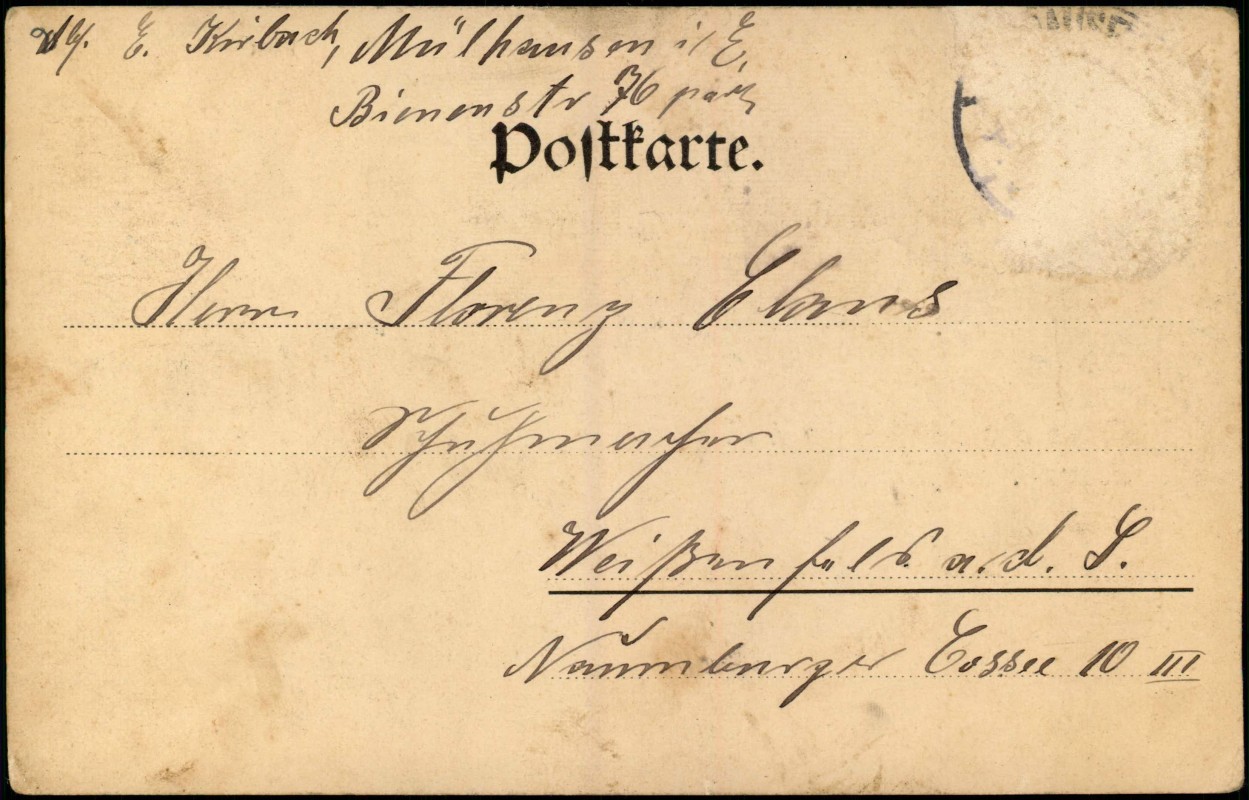 E. Kirbach, Mülhausen i/E.
Bienenstr 76 part
Postkarte.
Herrn Florenz
Schuhmacher
Weißenfels a. d. S.
Naumburger Cossee 10 III